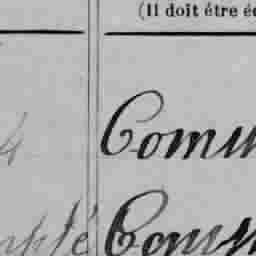 (Il doit être é
4 Comm
Comm